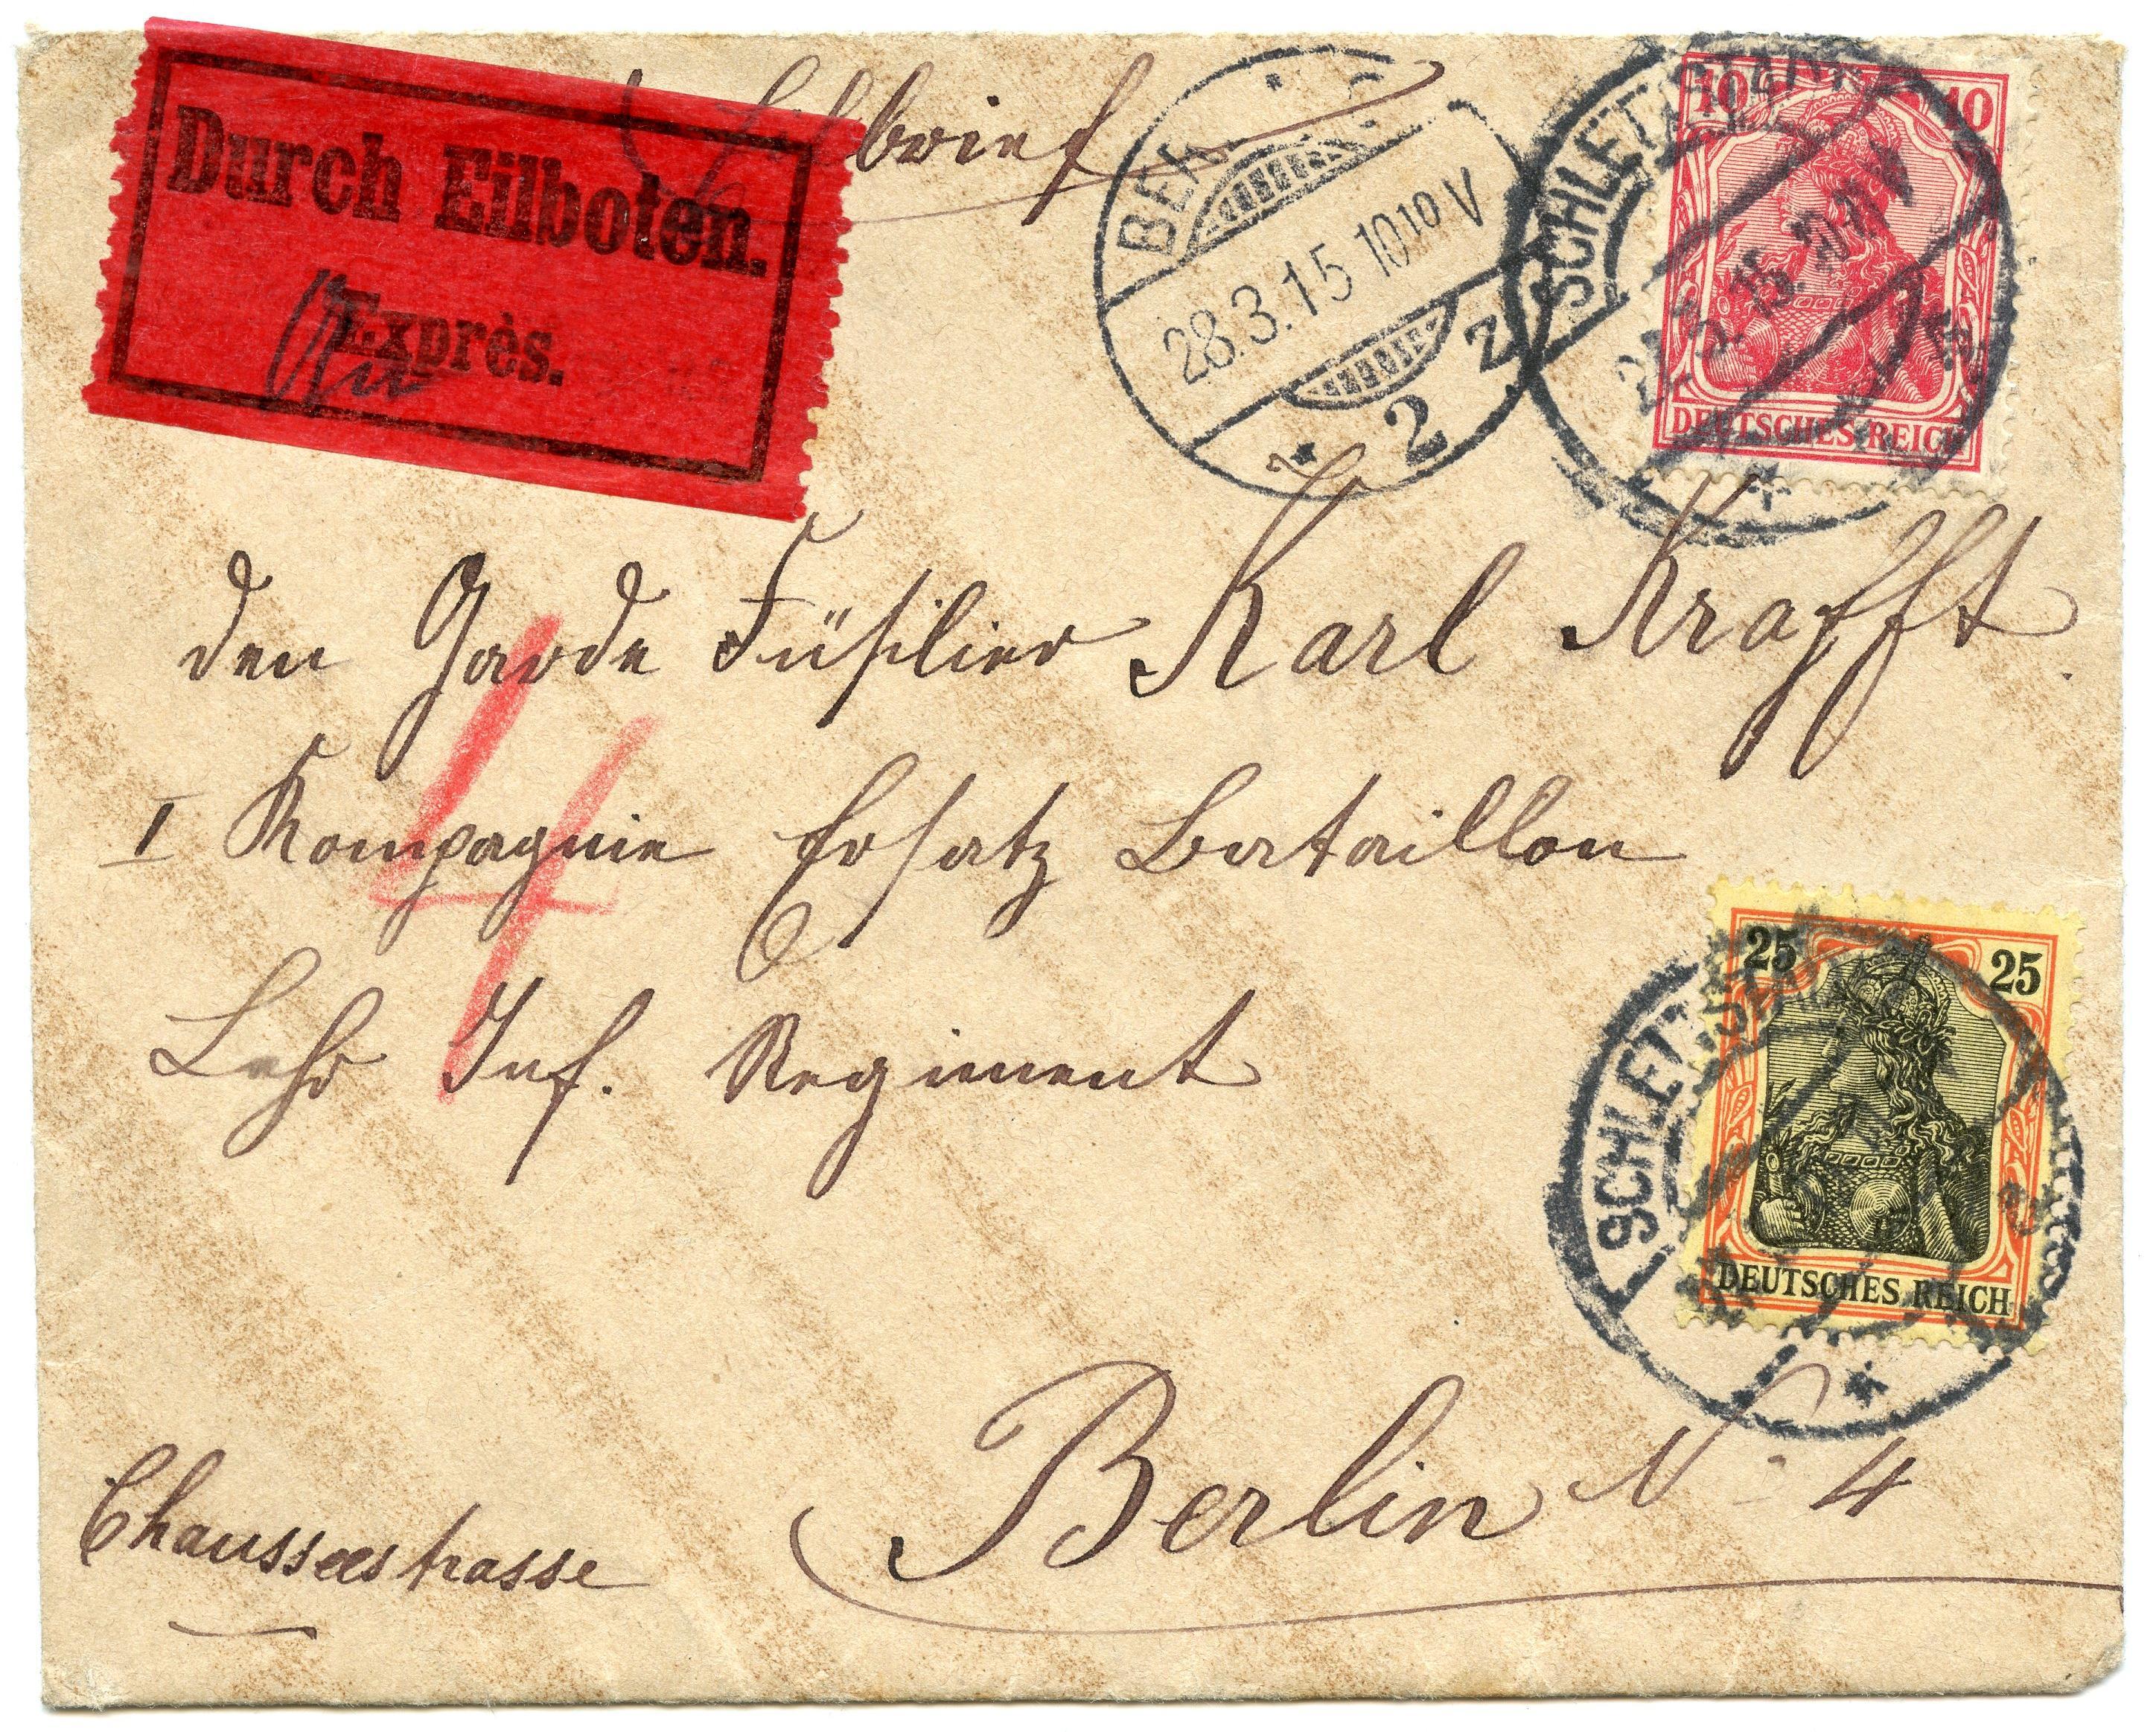 Durch Eilboten.
Exprès.
Eilbrief
BER
28.3.15 10 10 V
2 Z
SCHLETTSTADT
10 10
DEUTSCHES REICH
den Garde Füsilier Karl Krafft.
I Kompagnie Ersatz Bataillon
Lehr Inf. Regiment
4
25 25
DEUTSCHES REICH
SCHLETTSTADT
Berlin N. 4
Chausseestrasse